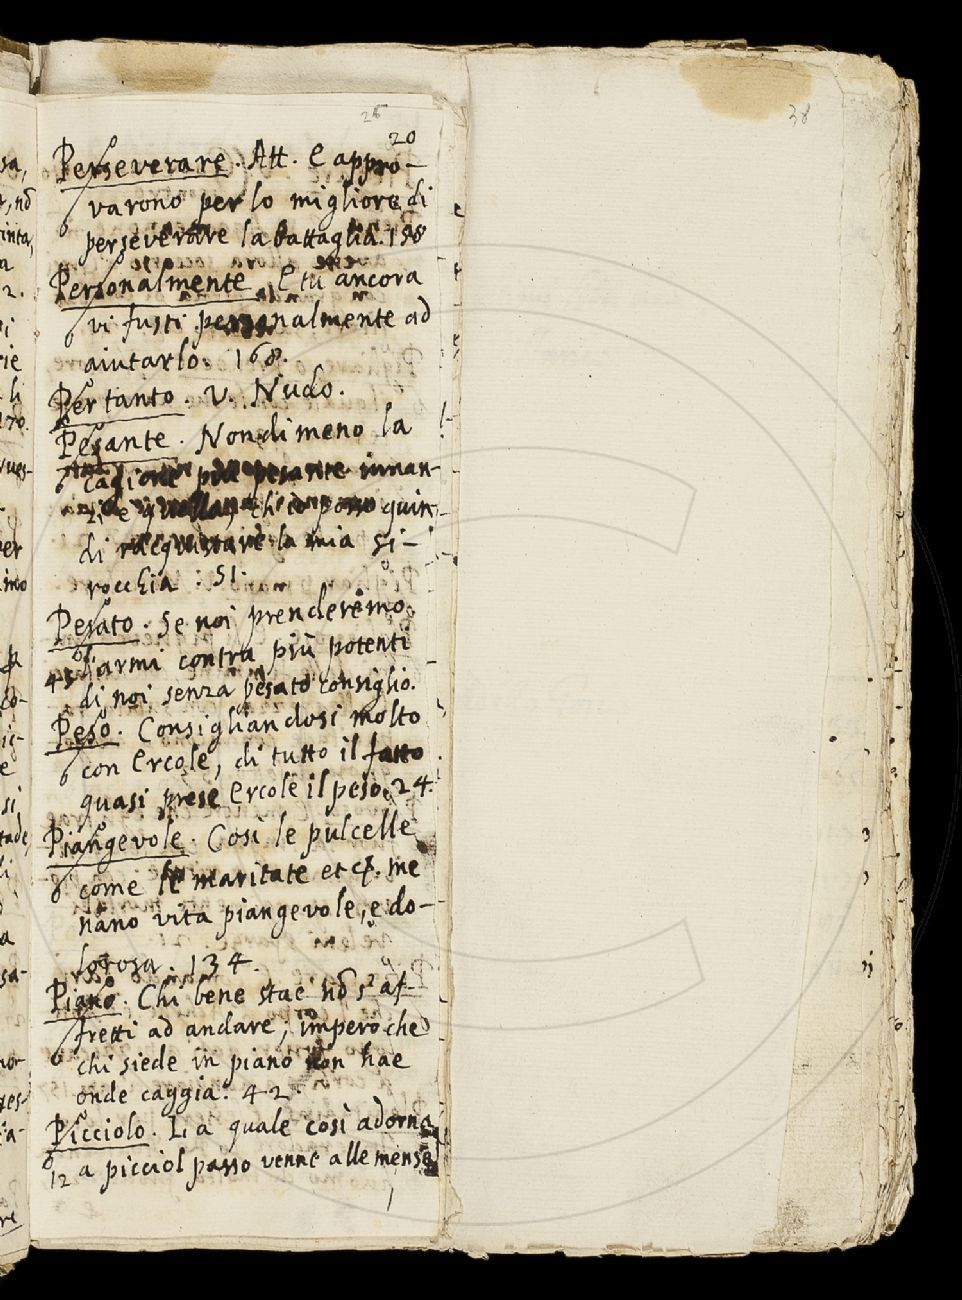 26
38
20
Perseverare. Att. E appro-
varono per lo migliore di
perseverare la battaglia. 158
Personalmente. E tu ancora
vi fusti personalmente ad
aiutarlo. 168.
Pertanto. V. Nudo.
Pesante. Nondimeno la
cagione più pesante innan-
zi e quella, ch' io posso quin-
di racquistare la mia si-
rocchia. 51.
Pesato. Se noi prenderemo
l'armi contra più potenti
43 di noi senza pesato consiglio.
Peso. Consigliandosi molto
con Ercole, di tutto il fatto
quasi prese Ercole il peso. 24.
Piangevole. Così le pulcelle
come le maritate etc. me
nano vita piangevole, e do-
lorosa. 134.
Piano. Chi bene stae nō s' af-
fretti ad andare; imperoche
chi siede in piano non hae
onde caggia. 42.
Picciolo. La quale così adorna
12 a picciol passo venne alle mense